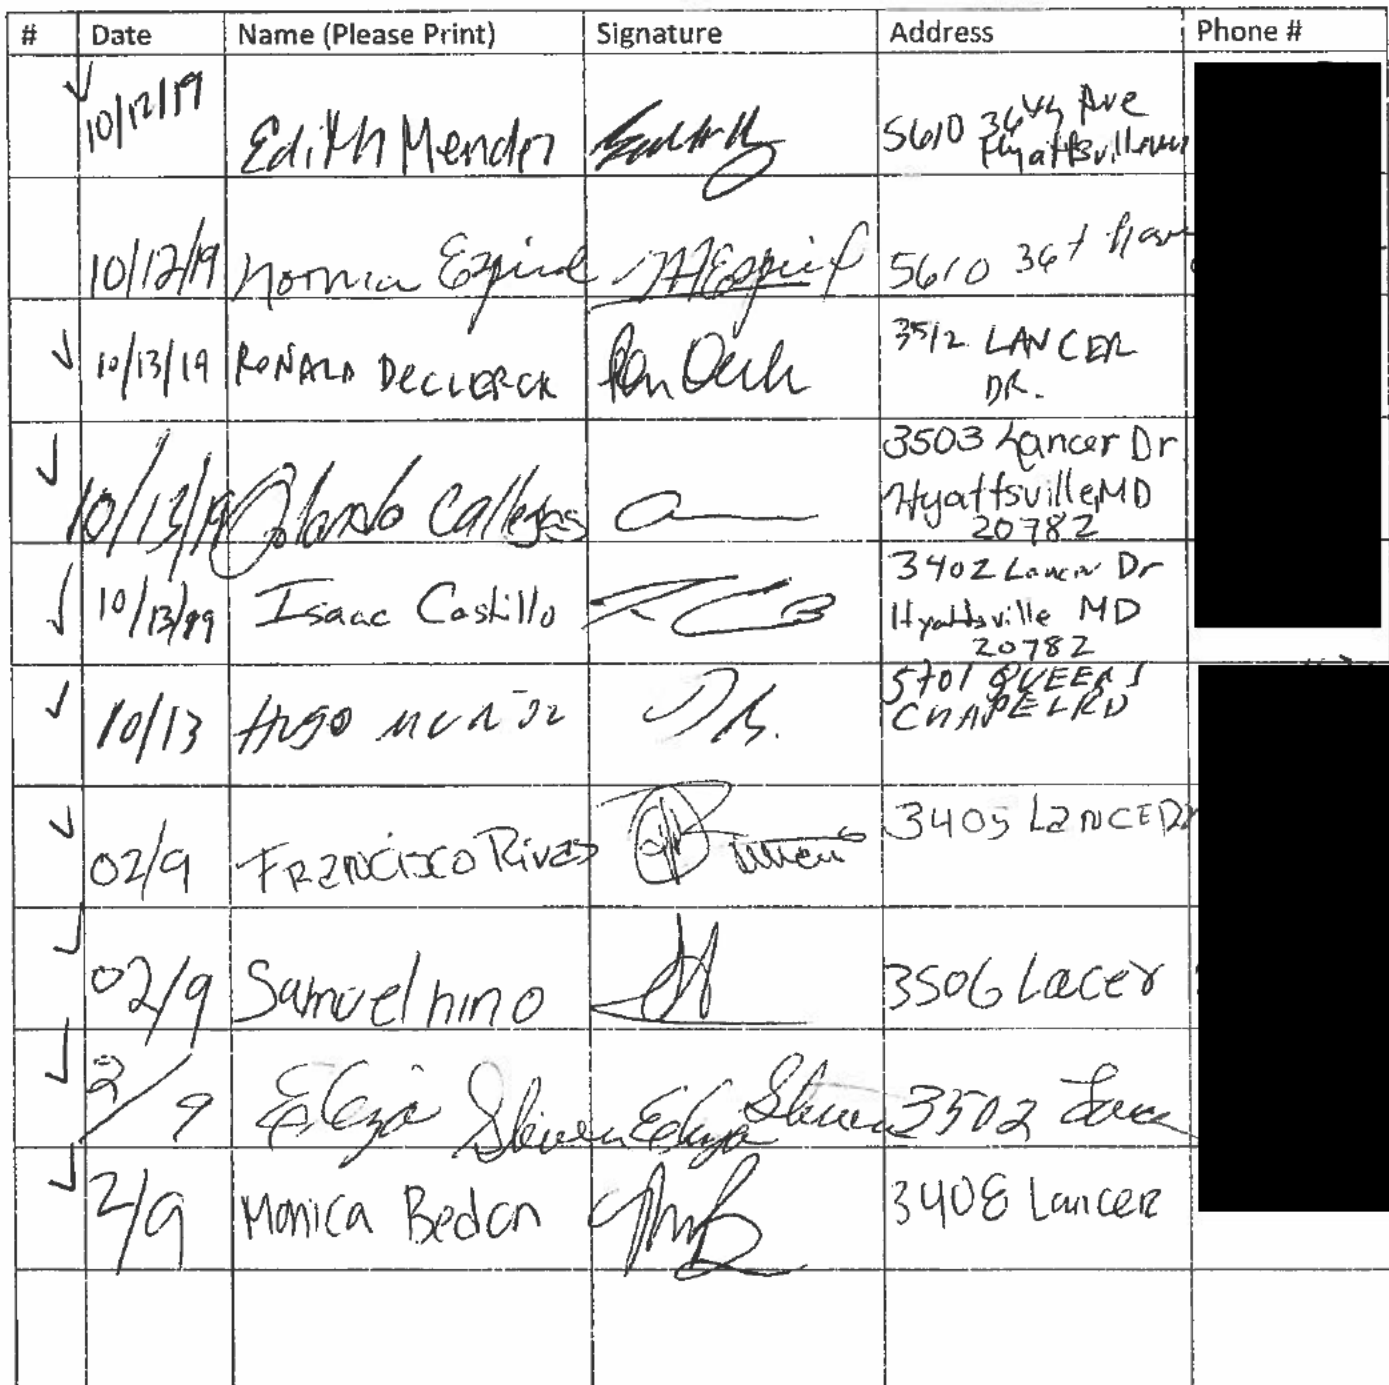 # Date Name (Please Print) Signature Address Phone #
10/12/19 Edith Mendez 5610 36th Ave
Hyattsville
10/12/19 5610 36
10/13/19 RONALD DECLERCK 3512 LANCER
DR.
10/13/19 Orlando Callejas 3503 Lancer Dr
Hyattsville, MD
20782
10/13/19 Isaac Castillo 3402 Lancer Dr
Hyattsville MD
20782
10/13 Hugo MUÑOZ 5701 QUEENS
CHAPEL RD
02/9 FRANCisco Rivas 3405 LANCE DR
02/9 Samuel nino 3506 Lacer
2/9 3502
2/9 Monica Bedon 3408 Lancer